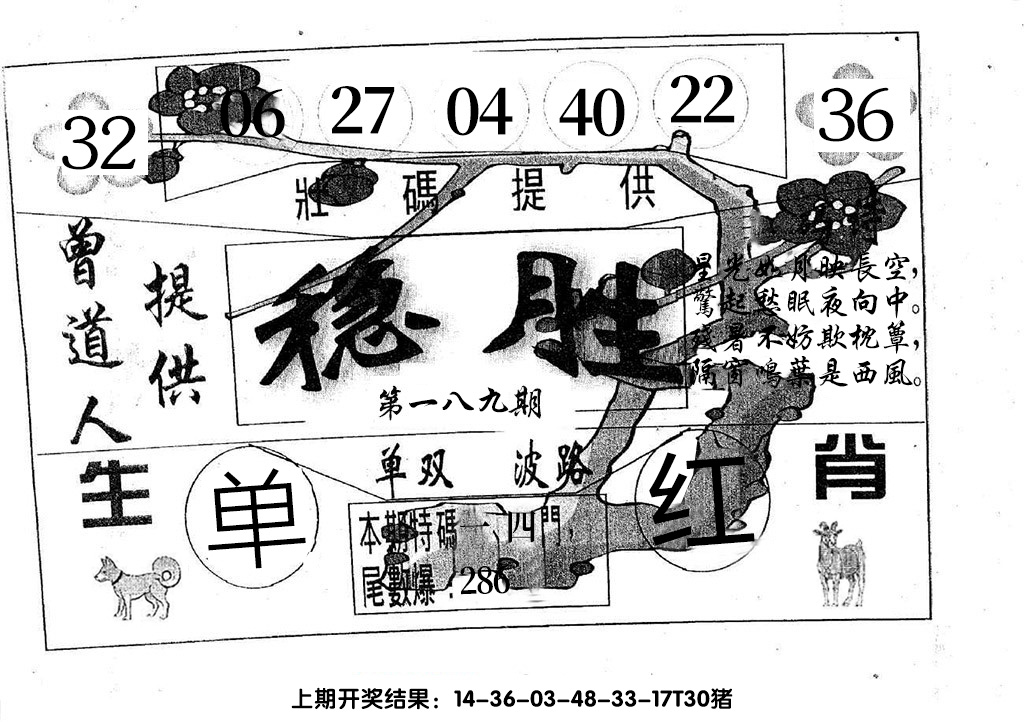 32 06 27 04 40 22 36
壯碼提供
特
曾道人
提供
稳胜
第一八九期
星光如月映長空,
驚起愁眠夜向中。
殘暑不妨欺枕簟,
隔窗鳴葉是西風。
单双 波路
生肖
单
红
本期特碼一、四門,
尾數爆:286
上期开奖结果：14-36-03-48-33-17T30猪